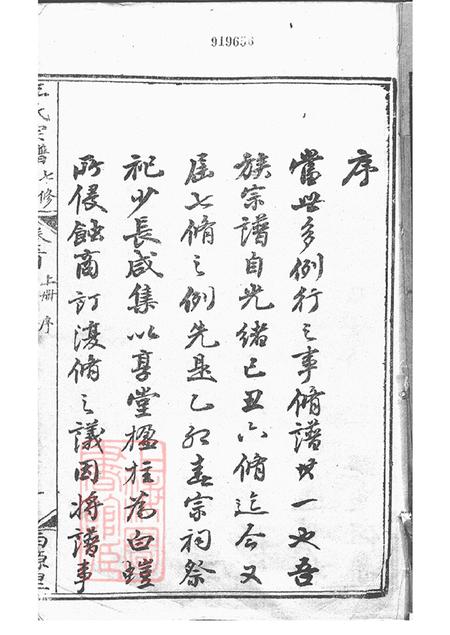 919656
序
當世多例行之事脩譜其一也吾
族宗譜自光緒己丑六脩迄今又
屆七脩之例先是乙卯春宗祠祭
祀少長咸集以享堂楹柱為白螘
所侵蝕商訂復脩之議因將譜事
氏宗譜七修
卷首 上册 序